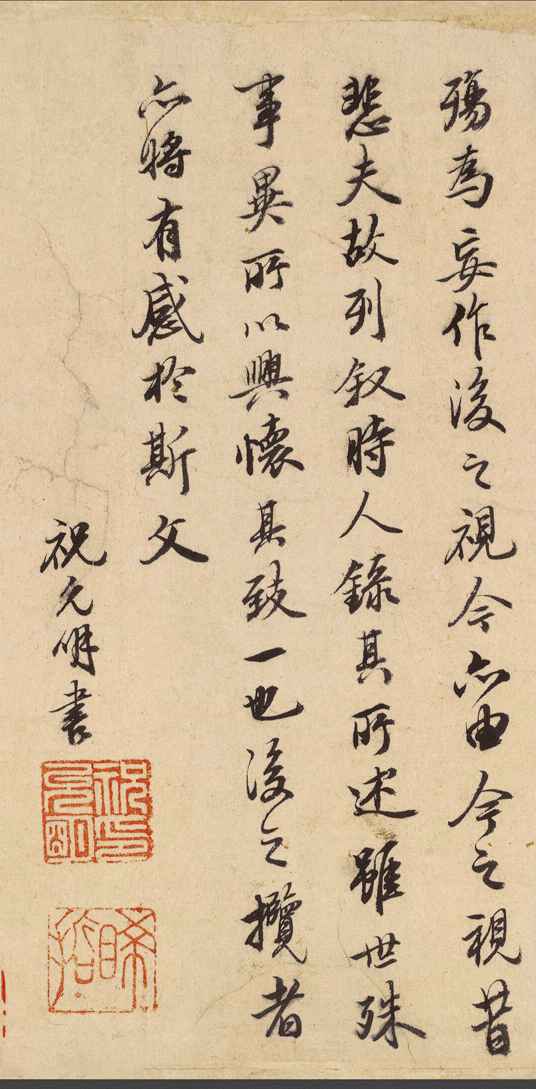 殤為妄作後之視今亦由今之視昔
悲夫故列叙時人錄其所述雖世殊
事異所以興懷其致一也後之攬者
亦將有感於斯文
祝允明書
祝印允明